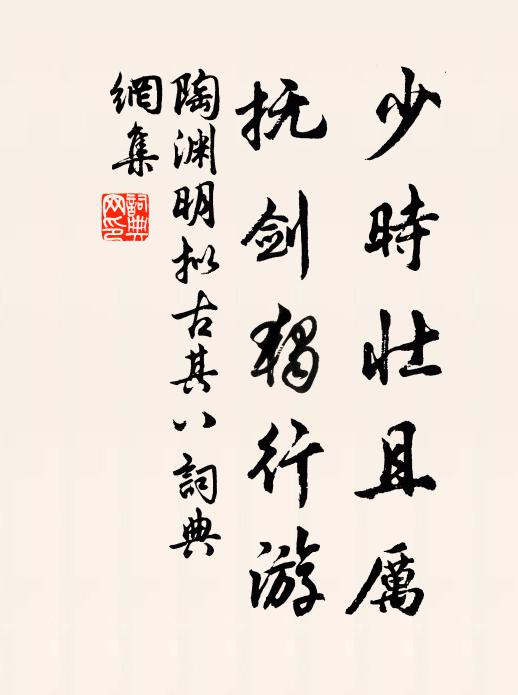 少時壯且厲
抚剑獨行游
陶渊明拟古其八詞典
網集
詞典
网印